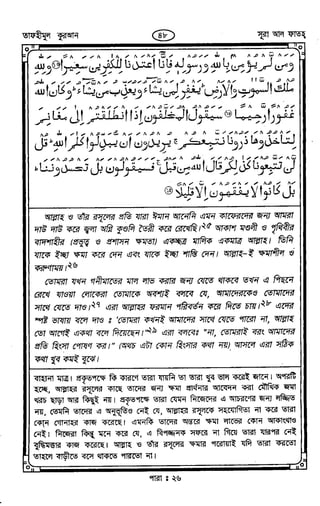 তাফহীমুল কুরআন
৪৮
সূরা আল ফাতহ
وَمَنْ لَّمْ يُؤْمِنْۢ بِاللّٰهِ وَرَسُوْلِهٖ فَاِنَّآ اَعْتَدْنَا لِلْكٰفِرِيْنَ سَعِيْرًا ۝ وَلِلّٰهِ
مُلْكُ السَّمٰوٰتِ وَالْاَرْضِ ؕ يَغْفِرُ لِمَنْ يَّشَآءُ وَيُعَذِّبُ مَنْ يَّشَآءُ ؕ وَكَانَ اللّٰهُ
غَفُوْرًا رَّحِيْمًا ۝ سَيَقُوْلُ الْمُخَلَّفُوْنَ اِذَا انْطَلَقْتُمْ اِلٰى مَغَانِمَ
لِتَاْخُذُوْهَا ذَرُوْنَا نَتَّبِعْكُمْ ۚ يُرِيْدُوْنَ اَنْ يُّبَدِّلُوْا كَلٰمَ اللّٰهِ ؕ قُلْ
لَّنْ تَتَّبِعُوْنَا كَذٰلِكُمْ قَالَ اللّٰهُ مِنْ قَبْلُ ۚ فَسَيَقُوْلُوْنَ بَلْ تَحْسُدُوْنَنَا ؕ
بَلْ كَانُوْا لَا يَفْقَهُوْنَ اِلَّا قَلِيْلًا ۝
আল্লাহ ও তাঁর রসূলের প্রতি যারা ঈমান আনেনি এমন কাফেরদের জন্য আমরা
দাউ দাউ করে জ্বলা অগ্নি কুণ্ডলি তৈরী করে রেখেছি।২৫ আকাশ মণ্ডলী ও পৃথিবীর
বাদশাহীর (প্রভুত্ব ও প্রশাসন ক্ষমতা) একচ্ছত্র মালিক একমাত্র আল্লাহ। তিনি
যাকে ইচ্ছা ক্ষমা করে দেন এবং যাকে ইচ্ছা শাস্তি দেন। আল্লাহ-ই ক্ষমাশীল ও
করুণাময়।২৬
তোমরা যখন গনীমাতের মাল লাভ করার জন্য যেতে থাকবে তখন এ পিছনে
রেখে যাওয়া লোকেরা তোমাকে অবশ্যই বলবে যে, আমাদেরকেও তোমাদের
সাথে যেতে দাও।২৭ এরা আল্লাহর ফরমান পরিবর্তন করে দিতে চায়।২৮ এদের
স্পষ্ট ভাষায় বলে দাও ঃ 'তোমরা কখনই আমাদের সাথে যেতে পারো না, আল্লাহ
তো আগেই একথা বলে দিয়েছেন।"২৯ এরা বলবেঃ "না, তোমরাই বরং আমাদের
প্রতি হিংসা পোষণ কর।" (অথচ এটা কোন হিংসার কথা নয়) আসলে এরা সঠিক
কথা খুব কমই বুঝে।
বাহানা মাত্র। প্রকৃতপক্ষে কি কারণে তারা যায়নি তা তারা খুব ভাল করেই জানে। অপরটি
হচ্ছে, আল্লাহর রসূলের কাছে তাদের জন্য ক্ষমা প্রার্থনার আবেদন করা মৌখিক জমা
খরচ ছাড়া আর কিছুই নয়। প্রকৃতপক্ষে তারা যেমন নিজেদের এ আচরণের জন্য লজ্জিত
নয়, তেমনি তাদের এ অনুভূতিও নেই যে, আল্লাহর রসূলকে সহযোগিতা না করে তারা
কোন গোনাহর কাজ করেছে। এমনকি তাদের অন্তরে ক্ষমা লাভের কোন আকাংখাও
নেই। নিজেরা কিন্তু মনে করে যে, এ বিপজ্জনক সফরে না গিয়ে তারা যারপর নেই
বুদ্ধিমত্তার কাজ করেছে। আল্লাহ ও তাঁর রসূলের ক্ষমার পরোয়াই যদি তারা করতো
তাহলে বাড়ীতে বসে থাকতে পারতো না।
পারা ঃ ২৬